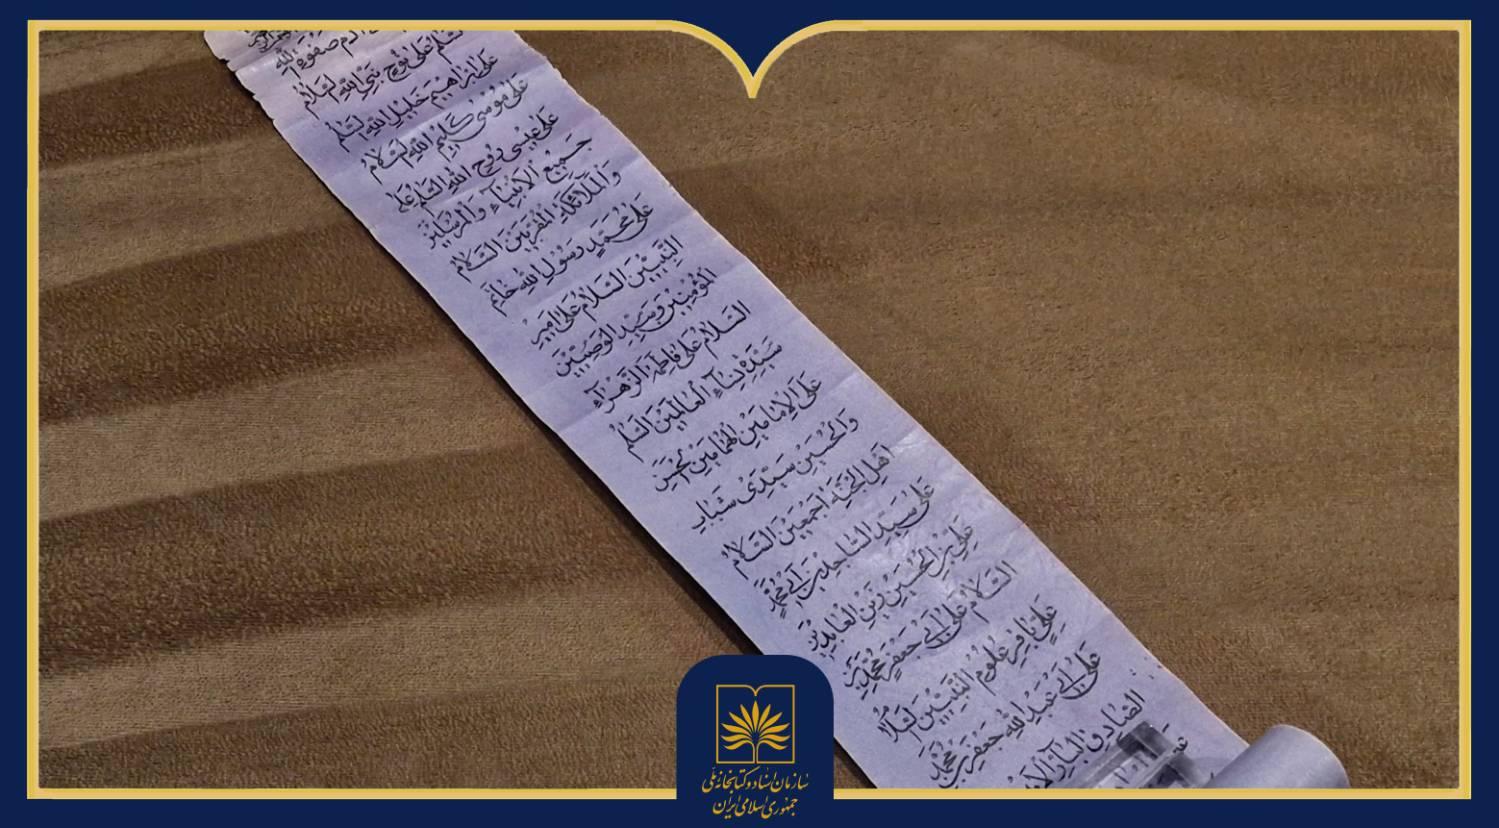 آدم صفوة الله
السلام على نوح نبي الله السلام
على ابراهيم خليل الله السلم
على موسى كليم الله السلام
على عيسى روح الله السلم على
جميع الانبياء والمرسلين
والملائكة المقربين السلام
على محمد رسول الله خاتم
النبيين السلام على امير
المؤمنين وسيد الوصيين
السلام على فاطمة الزهراء
سيدة نساء العالمين السلم
على الامامين الهمامين الحسن
والحسين سيدى شباب
اهل الجنة اجمعين السلام
على سيد الساجدين ابى محمد
على بن الحسين زين العابدين
السلام على ابى جعفر محمد بن
على باقر علوم النبيين السلام
على ابى عبد الله جعفر بن محمد
الصادق البار الامين
سازمان اسناد و کتابخانه ملی
جمهوری اسلامی ایران